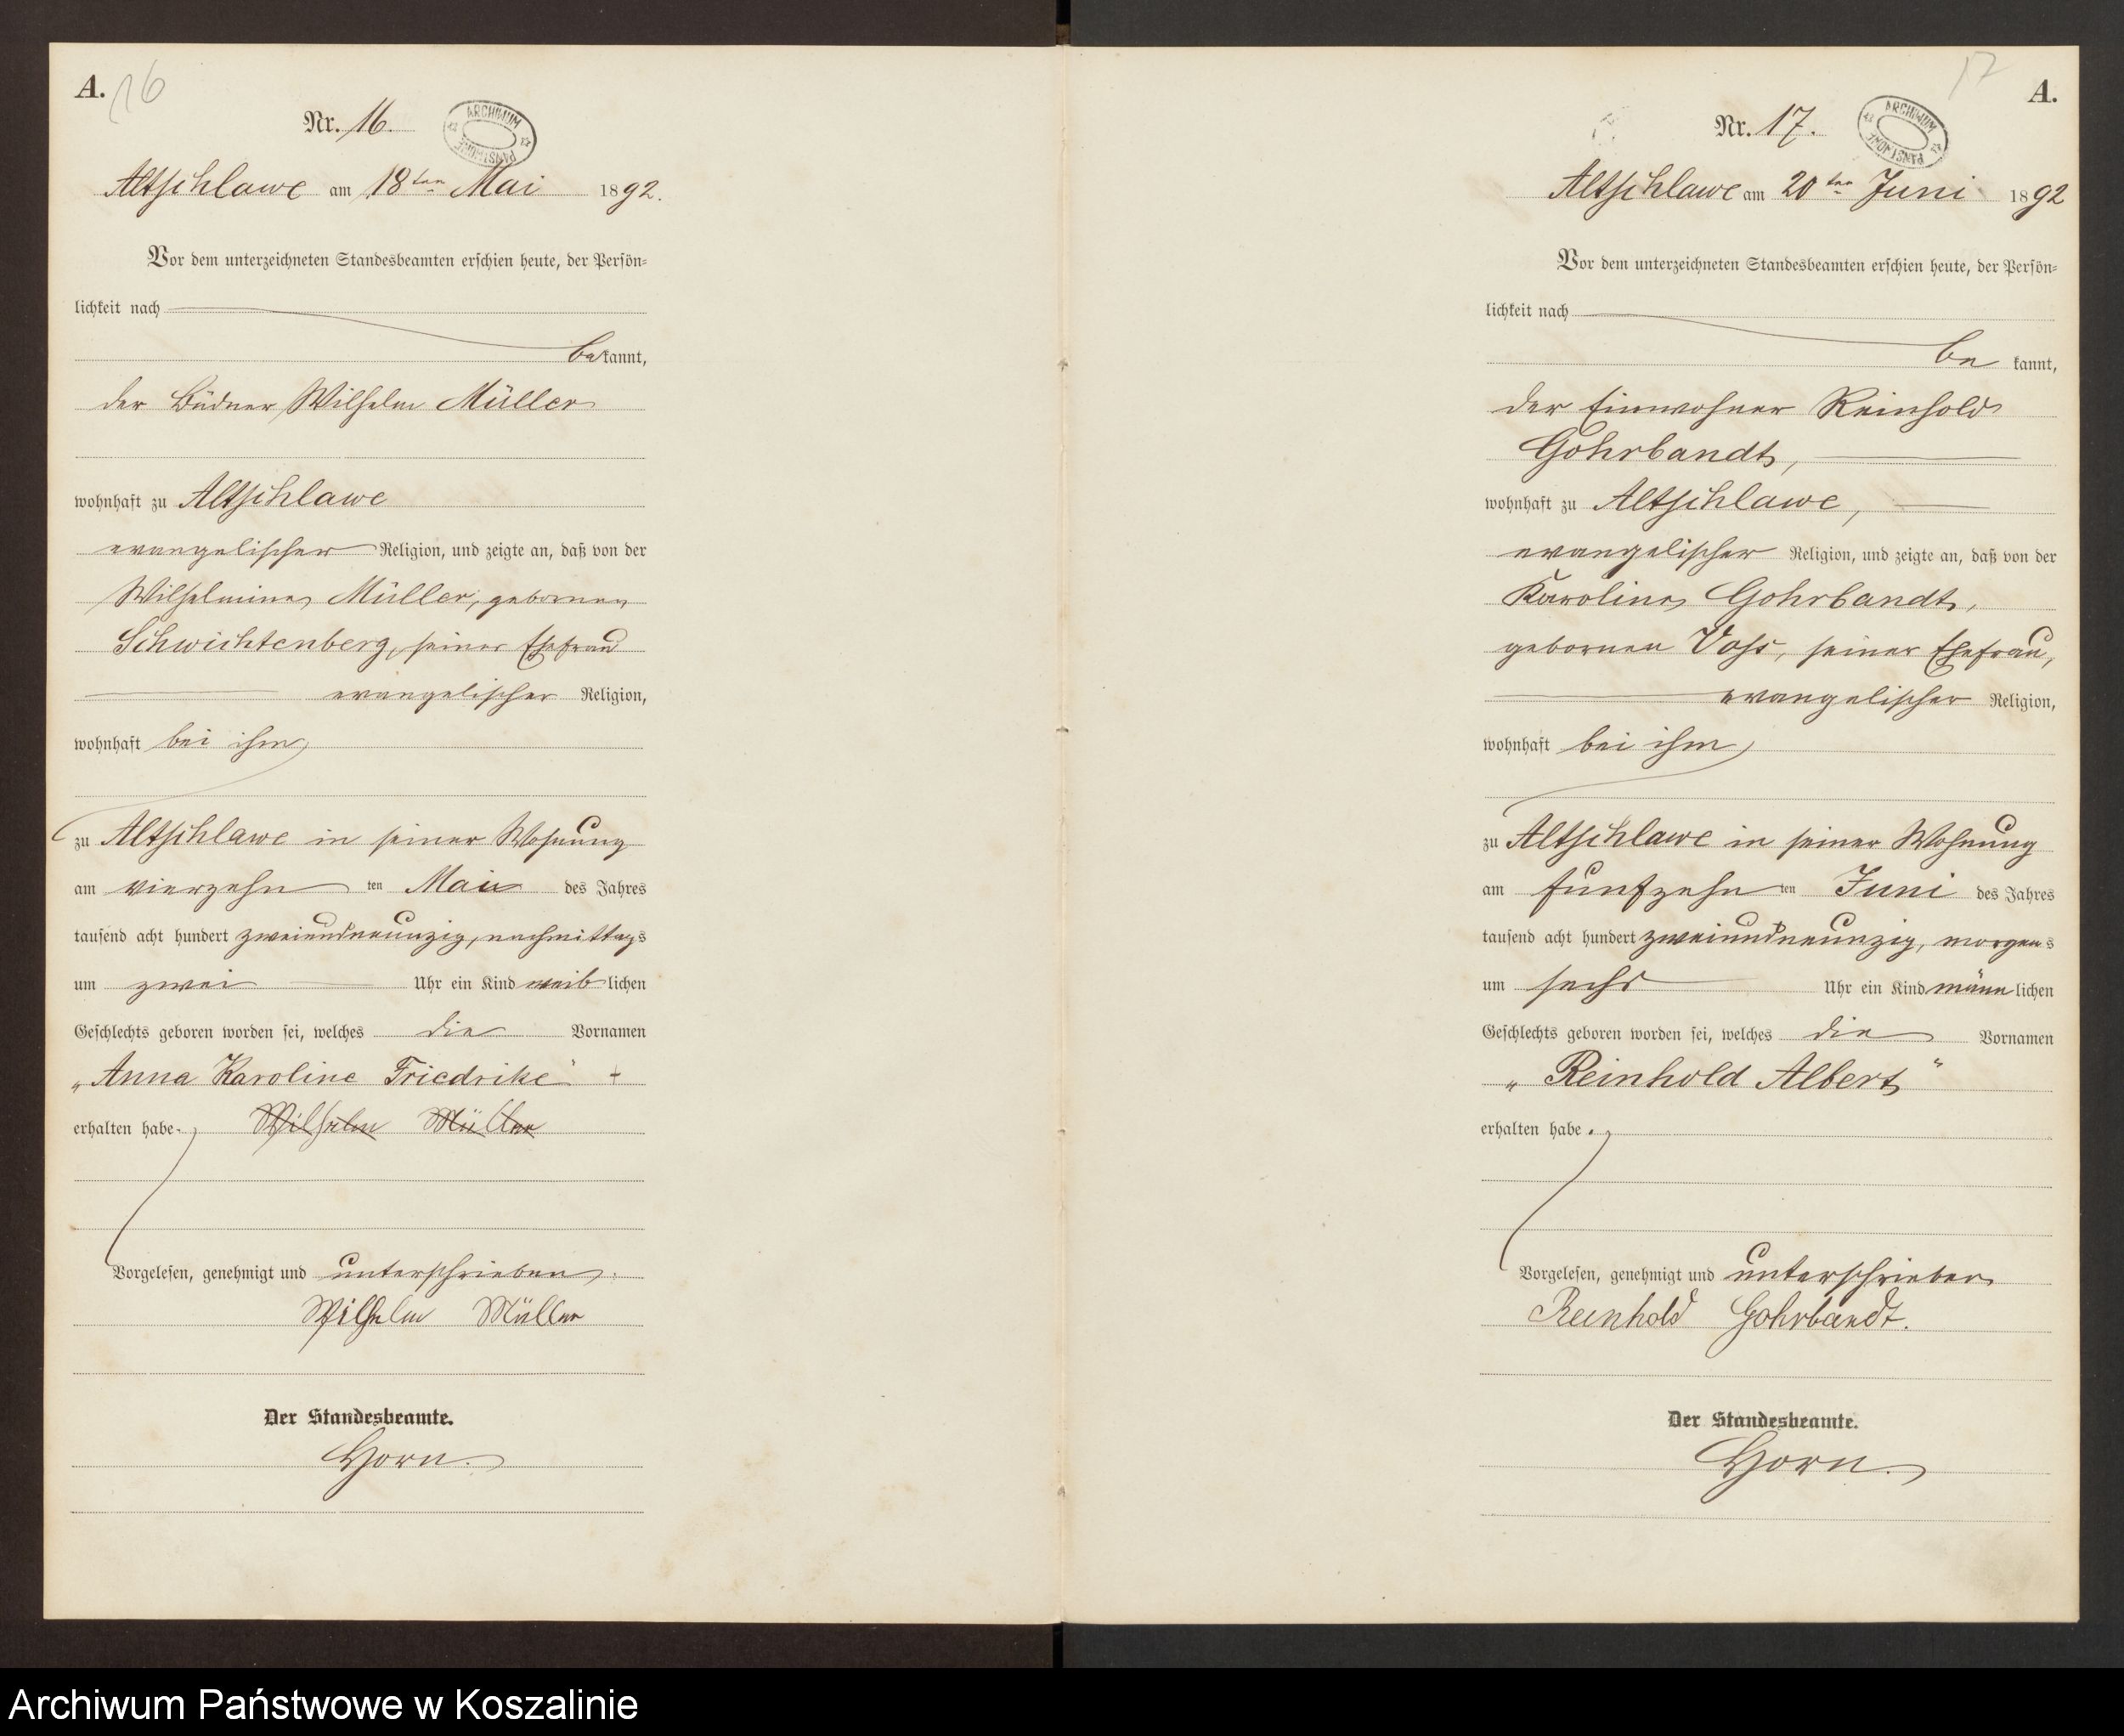 A. 16
Nr. 16.
ARCHIWUM PAŃSTWOWE
Altschlawe am 18ten Mai 1892.
Vor dem unterzeichneten Standesbeamten erschien heute, der Persön=
lichkeit nach
bekannt,
der Büdner Wilhelm Müller
wohnhaft zu Altschlawe
evangelischer Religion, und zeigte an, daß von der
Wilhelmine Müller, geborenen
Schwichtenberg, seiner Ehefrau
evangelischer Religion,
wohnhaft bei ihm
zu Altschlawe in seiner Wohnung
am vierzehn ten Mai des Jahres
tausend acht hundert zweiundneunzig, nachmittags
um zwei Uhr ein Kind weiblichen
Geschlechts geboren worden sei, welches die Vornamen
„Anna Karoline Friedrike“ +
erhalten habe. Wilhelm Müller
Vorgelesen, genehmigt und unterschrieben.
Wilhelm Müller
Der Standesbeamte.
Horn.
17 A.
Nr. 17.
ARCHIWUM PAŃSTWOWE
Altschlawe am 20ten Juni 1892
Vor dem unterzeichneten Standesbeamten erschien heute, der Persön=
lichkeit nach
be kannt,
der Einwohner Reinhold
Gohrbandt,
wohnhaft zu Altschlawe,
evangelischer Religion, und zeigte an, daß von der
Karoline Gohrbandt,
gebornen Voss, seiner Ehefrau,
evangelischer Religion,
wohnhaft bei ihm
zu Altschlawe in seiner Wohnung
am fünfzehn ten Juni des Jahres
tausend acht hundert zweiundneunzig, morgens
um sechs Uhr ein Kind männlichen
Geschlechts geboren worden sei, welches die Vornamen
„Reinhold Albert“
erhalten habe.
Vorgelesen, genehmigt und unterschrieben
Reinhold Gohrbandt.
Der Standesbeamte.
Horn.
Archiwum Państwowe w Koszalinie